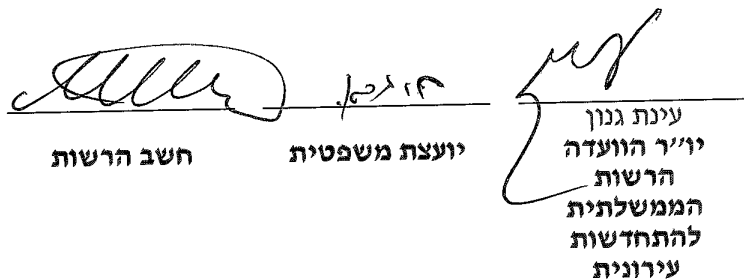 עינת גנון
יו״ר הוועדה
הרשות
הממשלתית
להתחדשות
עירונית
יועצת משפטית
חשב הרשות